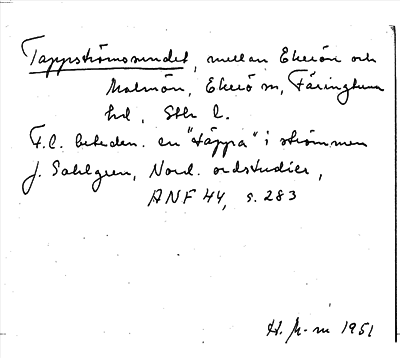 Tappströmssundet, mellan Ekerön och
Malmön, Ekerö sn, Färingtuna
hd, Sthlm l.
F.l. beteckn. en "täppa" i strömmen
J. Sahlgren, Nord. ordstudier,
ANF 44, s. 283
H. M-m 1951